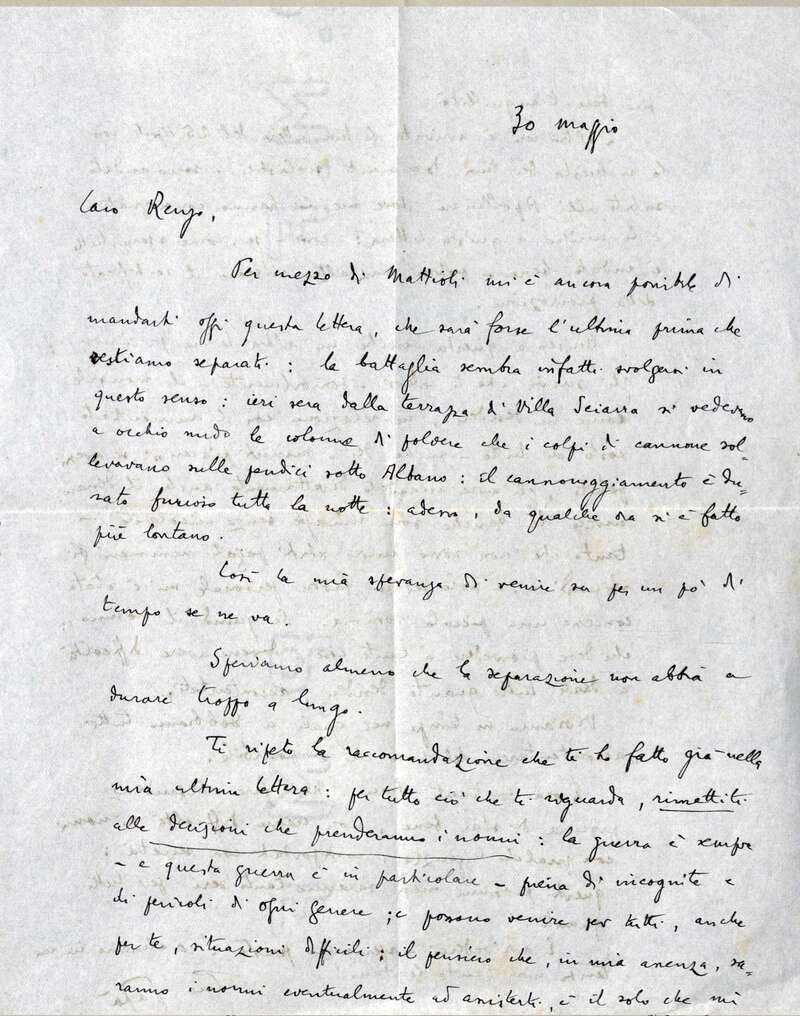 30 maggio
Caro Renzo,
Per mezzo di Mattioli mi è ancora possibile di
mandarti oggi questa lettera, che sarà forse l'ultima prima che
restiamo separati: la battaglia sembra infatti svolgersi in
questo senso: ieri sera dalla terrazza di Villa Sciarra si vedevano
a occhio nudo le colonne di polvere che i colpi di cannone sol=
levavano sulle pendici sotto Albano: il cannoneggiamento è du=
rato furioso tutta la notte: adesso, da qualche ora si è fatto
più lontano.
Così la mia speranza di venire su per un pò di
tempo se ne va.
Speriamo almeno che la separazione non abbia a
durare troppo a lungo.
Ti ripeto la raccomandazione che ti ho fatto già nella
mia ultima lettera: per tutto ciò che ti riguarda, rimettiti
alle decisioni che prenderanno i nonni: la guerra è sempre
- e questa guerra è in particolare - piena di incognite e
di pericoli di ogni genere; e possono venire per tutti, anche
per te, situazioni difficili: il pensiero che, in mia assenza, sa=
ranno i nonni eventualmente ad assisterti, è il solo che mi